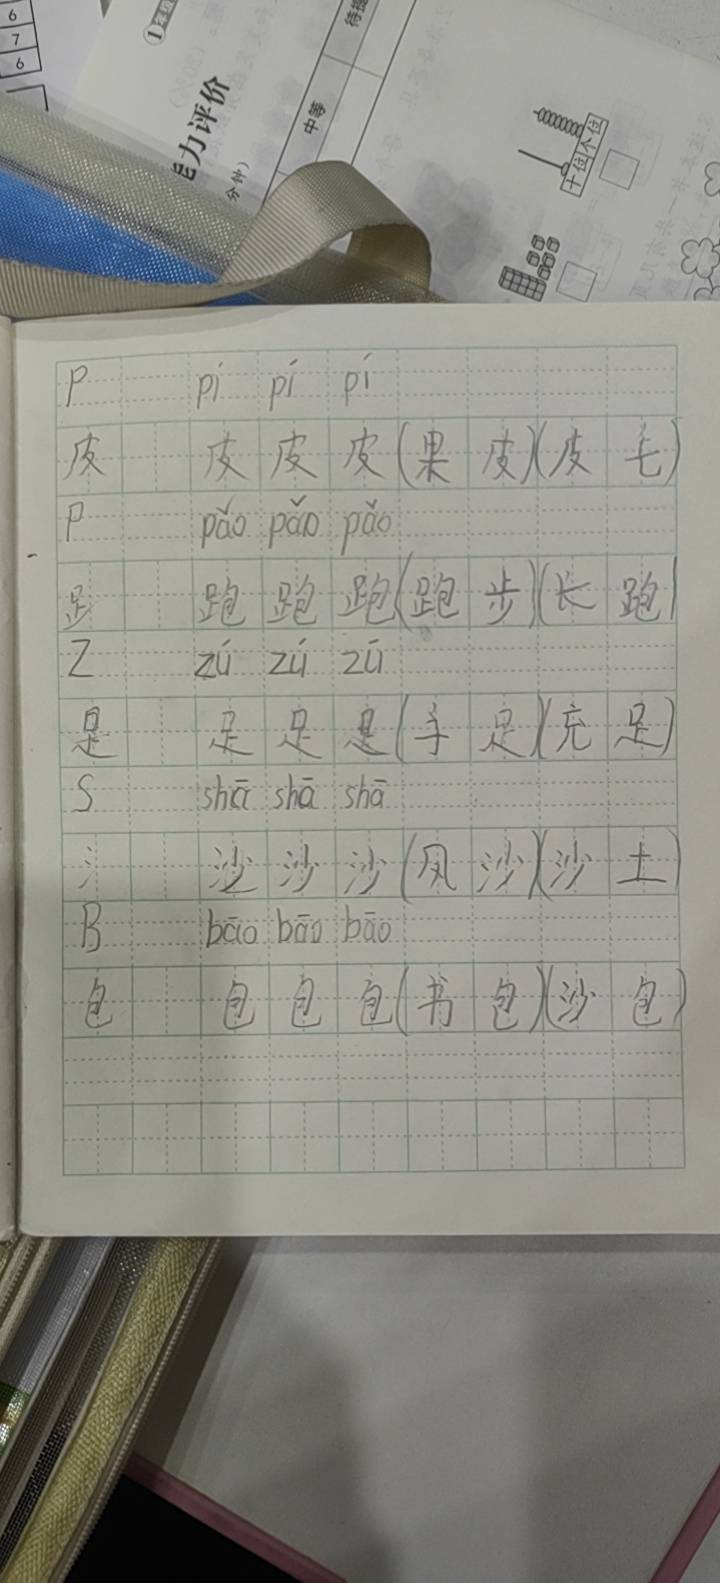 6
7
6
①年级
能力评价
分钟）
中等
待提
十位个位
P pí pí pí
皮 皮 皮 皮（果皮）（皮毛）
P pǎo pǎo pǎo
𧾷 跑 跑 跑（跑步）（长跑）
Z zú zú zū
足 足 足 足（手足）（充足）
S shā shā shā
氵 沙 沙 沙（风沙）（沙土）
B bāo bāo bāo
包 包 包 包（书包）（沙包）